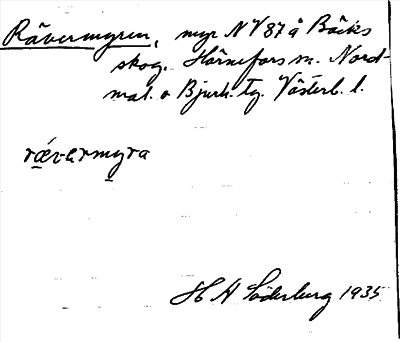 Rävermyren, myr NV 87 å Bäcks
skog. Hörnefors sn. Nord-
mal. o Bjurh. tg. Västerb. l.
rǽvarmyra
H A Söderburg 1935